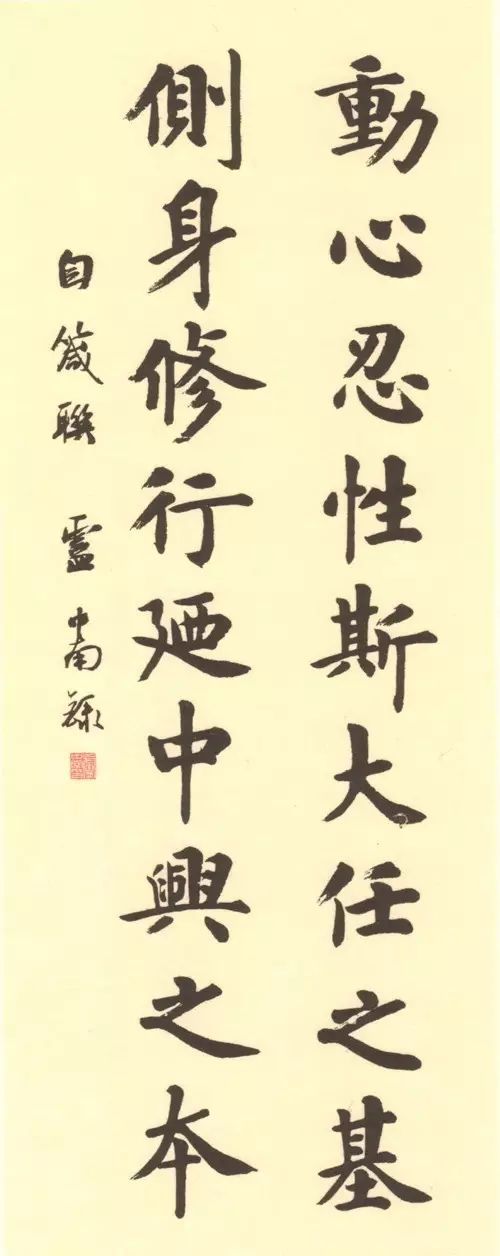 動心忍性斯大任之基
側身修行廼中興之本
自箴聯 盧中南錄